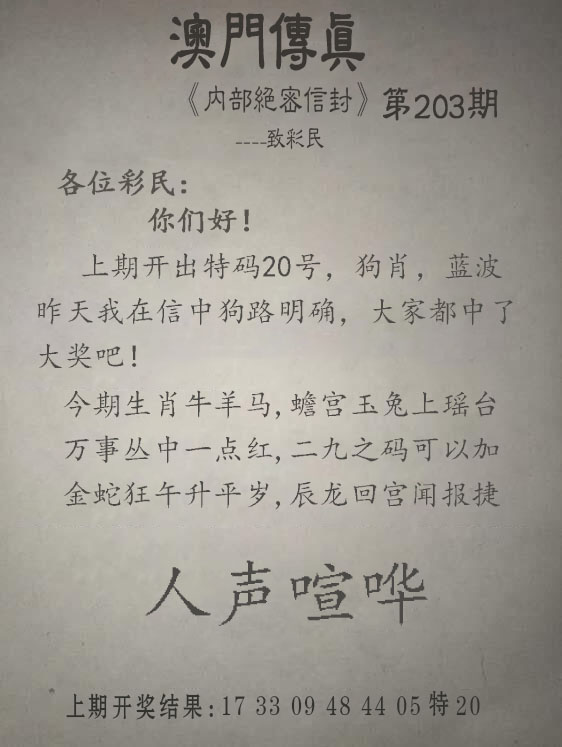 澳門傳眞
《内部絕密信封》第203期
----致彩民
各位彩民：
你们好！
上期开出特码20号，狗肖，蓝波
昨天我在信中狗路明确，大家都中了
大奖吧！
今期生肖牛羊马,蟾宫玉兔上瑶台
万事丛中一点红,二九之码可以加
金蛇狂午升平岁,辰龙回宫闻报捷
人声喧哗
上期开奖结果:17 33 09 48 44 05 特 20